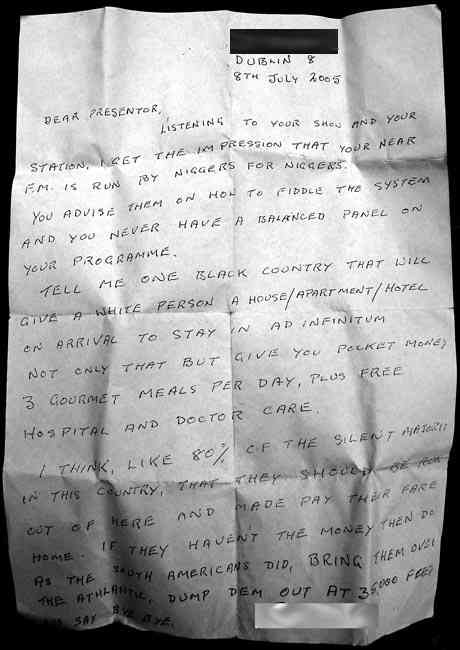 DUBLIN 8
8TH JULY 2005
DEAR PRESENTOR,
LISTENING TO YOUR SHOW AND YOUR
STATION, I GET THE IMPRESSION THAT YOUR NEAR
F.M. IS RUN BY NIGGERS FOR NIGGERS.
YOU ADVISE THEM ON HOW TO FIDDLE THE SYSTEM
AND YOU NEVER HAVE A BALANCED PANEL ON
YOUR PROGRAMME.
TELL ME ONE BLACK COUNTRY THAT WILL
GIVE A WHITE PERSON A HOUSE/APARTMENT/HOTEL
ON ARRIVAL TO STAY IN AD INFINITUM
NOT ONLY THAT BUT GIVE YOU POCKET MONEY
3 GOURMET MEALS PER DAY, PLUS FREE
HOSPITAL AND DOCTOR CARE.
I THINK, LIKE 80% OF THE SILENT MAJORITY
IN THIS COUNTRY, THAT THEY SHOULD BE
OUT OF HERE AND MADE PAY THEIR FARE
HOME. IF THEY HAVEN'T THE MONEY THEN DO
AS THE SOUTH AMERICANS DID, BRING THEM OVER
THE ATHLANTIC, DUMP DEM OUT AT 35,000 FEET
SAY BYE BYE.